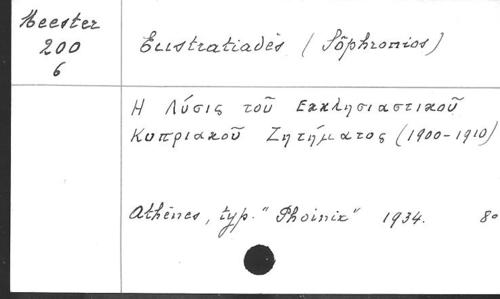 Meester
200
6
Eustratiadès (Sôphronios)
Η Λύσις τοῦ Εκκλησιαστικοῦ
Κυπριακοῦ Ζητήματος (1900-1910)
Athènes, typ. "Phoinix" 1934. 8°